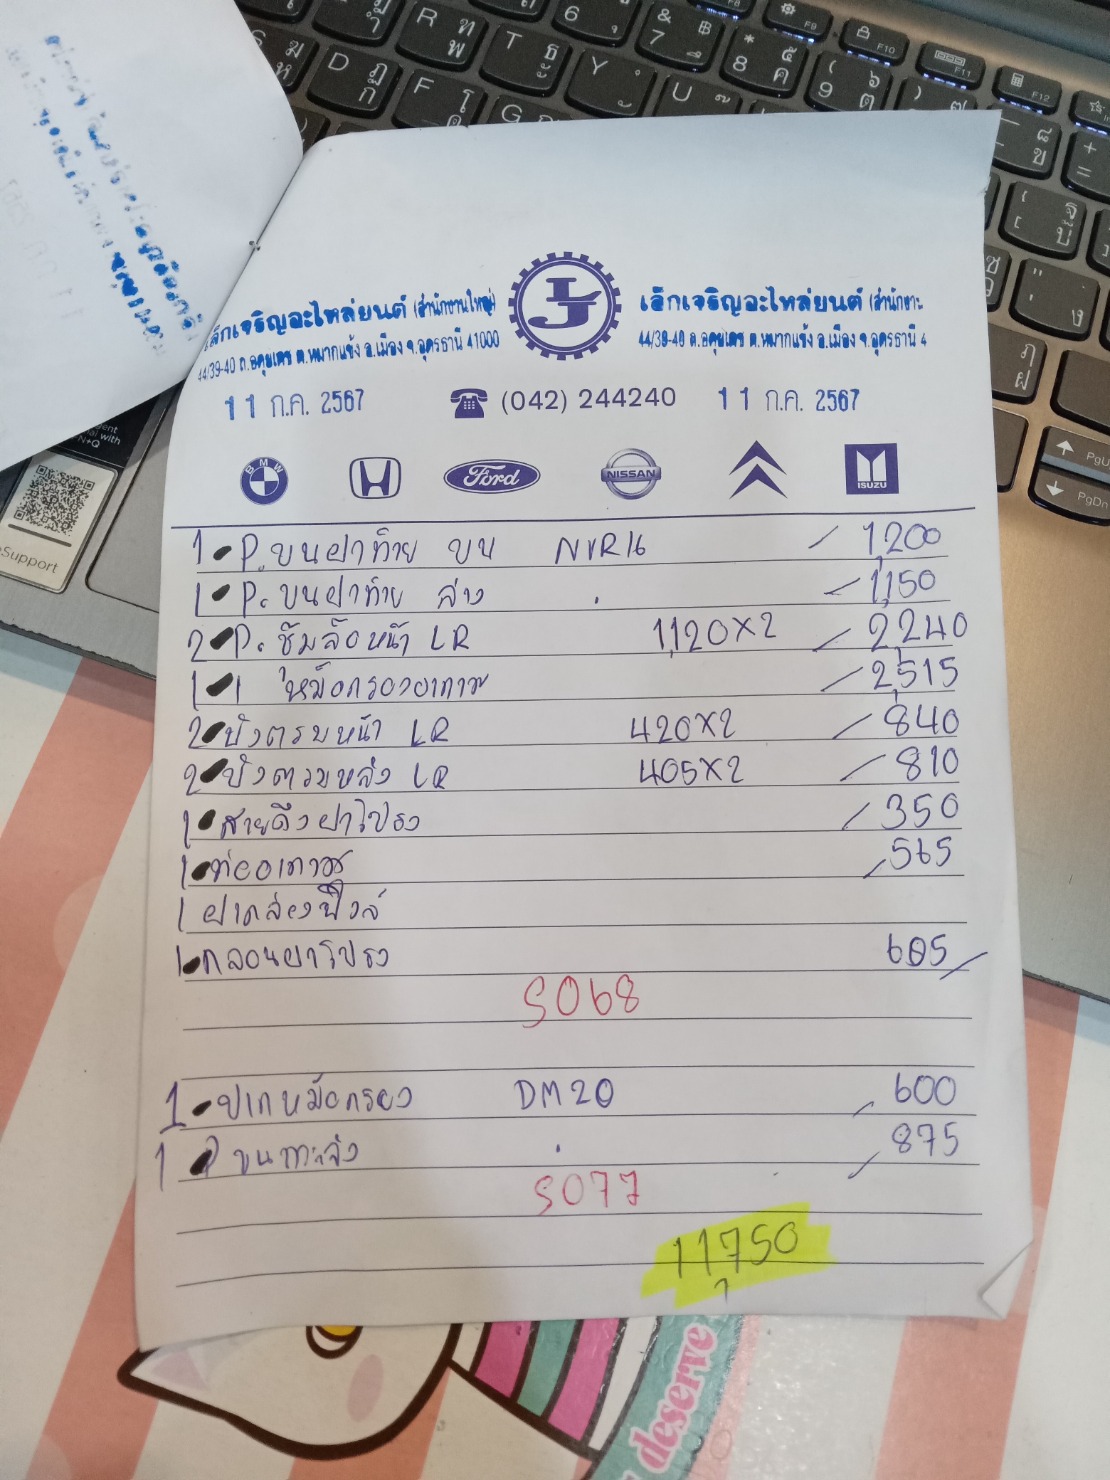 เล็กเจริญอะไหล่ยนต์ (สำนักงานใหญ่)
44/39-40 ถ.อดุยเดช ต.หมากแข้ง อ.เมือง จ.อุดรธานี 41000
เล็กเจริญอะไหล่ยนต์ (สำนักงาน
44/39-40 ถ.อดุยเดช ต.หมากแข้ง อ.เมือง จ.อุดรธานี 4
11 ก.ค. 2567 (042) 244240 11 ก.ค. 2567
BMW Ford NISSAN ISUZU
1 P. บนฝาท้าย บน NVR16 1,200
1 P. บนฝาท้าย ล่าง 1,150
2 P. ซุ้มล้อหน้า LR 1,120X2 2,240
1 หม้อกรองอากาศ 2,515
2 บังตรมหน้า LR 420X2 840
2 บังตรมหลัง LR 405X2 810
1 สายดึงฝาโปรง 350
1 ท่ออากาศ 565
1 ฝากล่องฟิวส์
1 กลอนฝาโปรง 605
S068
1 ปากหม้อกรอง DM20 600
1 P 875
S077
11,750